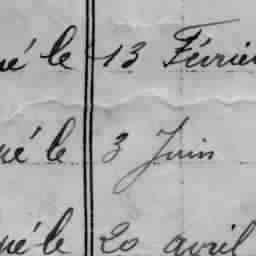 né le 13 Février
né le 3 Juin
né le 20 avril